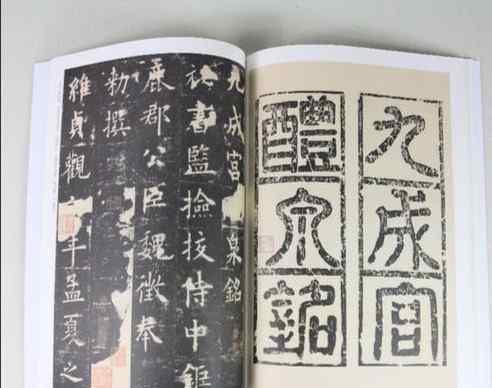 九成宮
醴泉銘
九成宮泉銘
秘書監撿挍侍中鉅
鹿郡公臣魏徵奉
勑撰
維貞觀年孟夏之